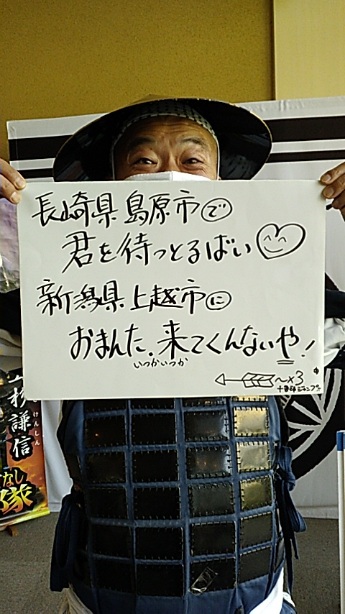 長崎県島原市で
君を待っとるばい
新潟県上越市に
おまんた、来てくんないや!
いつかいつか
〜×3
謙信
けんしん
なし
隊